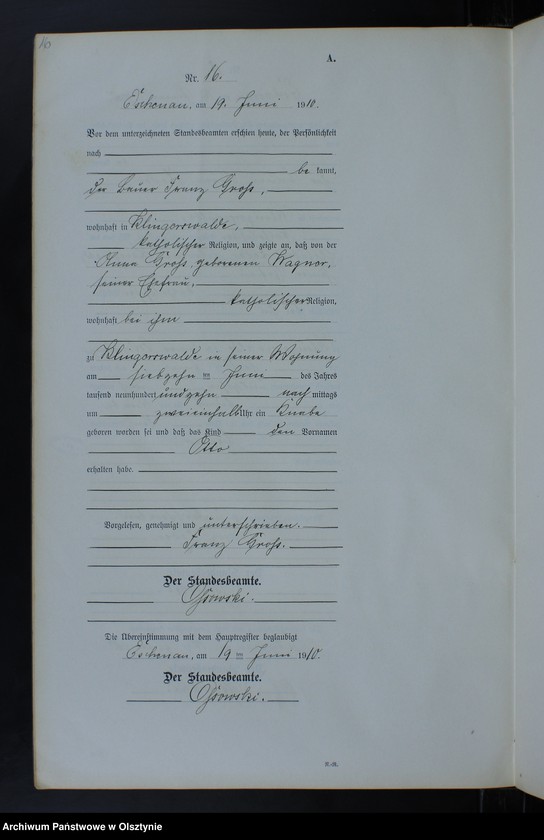 10
A.
Nr. 16.
Eschenau, am 19. Juni 1910.
Vor dem unterzeichneten Standesbeamten erschien heute, der Persönlichkeit
nach
be kannt,
der Bauer Franz Groß,
wohnhaft in Klingerswalde,
katholischer Religion, und zeigte an, daß von der
Anna Groß, geborenen Wagner,
seiner Ehefrau,
katholischer Religion,
wohnhaft bei ihm
zu Klingerswalde in seiner Wohnung
am siebzehn ten Juni des Jahres
tausend neunhundert und zehn nach mittags
um zweieinhalb Uhr ein Knabe
geboren worden sei und daß das Kind den Vornamen
Otto
erhalten habe.
Vorgelesen, genehmigt und unterschrieben.
Franz Groß.
Der Standesbeamte.
Ossowski.
Die Übereinstimmung mit dem Hauptregister beglaubigt
Eschenau, am 19 ten Juni 1910.
Der Standesbeamte.
Ossowski.
Archiwum Państwowe w Olsztynie